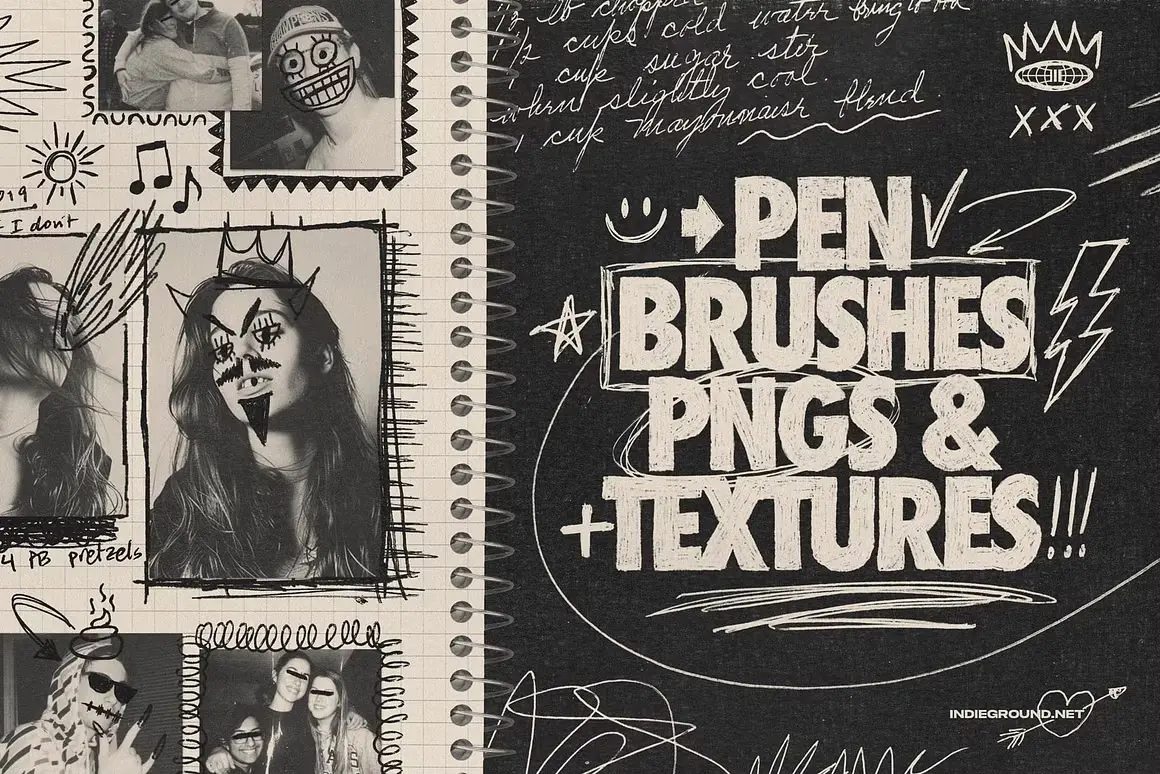 2019
I don't
4 PB pretzels
1/2 lb chopped
1/2 cups cold water bring to
1 cup sugar stir
when slightly cool.
1 cup mayonnaise blend
XXX
PEN
BRUSHES
PNGS &
+TEXTURES!!!
INDIEGROUND.NET